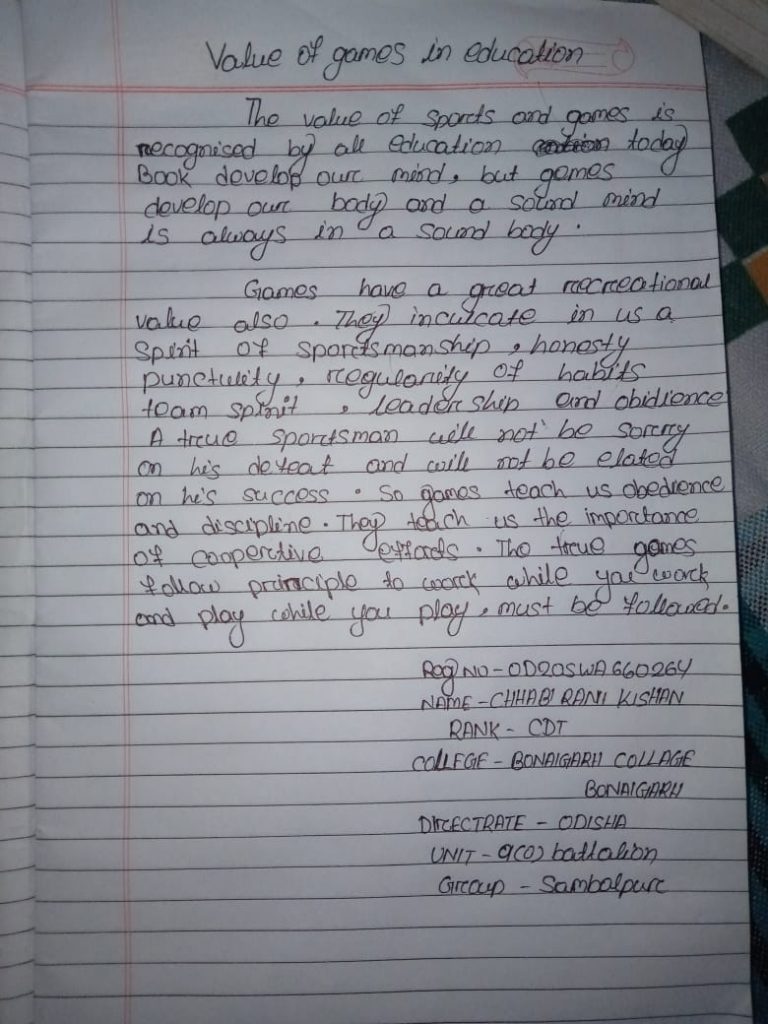 Value of games in education
The value of sports and games is
recognised by all education today
Book develop our mind, but games
develop our body and a sound mind
is always in a sound body.
Games have a great recreational
value also. They inculcate in us a
spirit of sportsmanship, honesty
punctulity, regularity of habits
team spirit, leadership and obidience
A true sportsman will not be sorry
on his defeat and will not be elated
on his success. So games teach us obedience
and discipline. They teach us the importance
of cooperctive efforts. The true games
follow principle to work while you work
and play while you play, must be followed.
Reg NO - OD20SWA660264
NAME - CHHABI RANI KISHAN
RANK - CDT
COLLEGE - BONAIGARH COLLAGE
BONAIGARH
DIRECTRATE - ODISHA
UNIT - 9(O) battalion
Group - Sambalpur